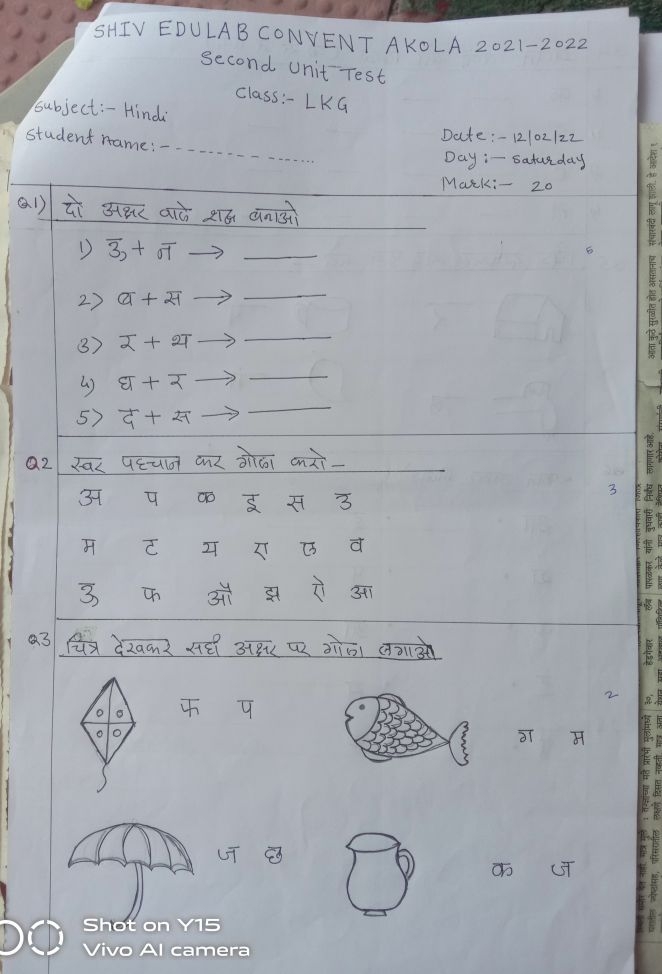 SHIV EDULAB CONVENT AKOLA 2021-2022
Second Unit Test
Class:- LKG
Subject:- Hindi
Student name:-
Date:- 12/02/22
Day:- saturday
Mark:- 20
Q1) दो अक्षर वाले शब्द बनाओ
1) ऊ + न →
5
2) ब + स →
3) र + थ →
4) घ + र →
5) द + स →
Q2 स्वर पहचान कर गोला करो -
3
अ प क इ स उ
म ट य रा ल व
ऊ फ औ झ ऐ आ
Q3 चित्र देखकर सही अक्षर पर गोला लगाओ
2
फ प
ग म
ज छ
क ज
Shot on Y15
Vivo AI camera